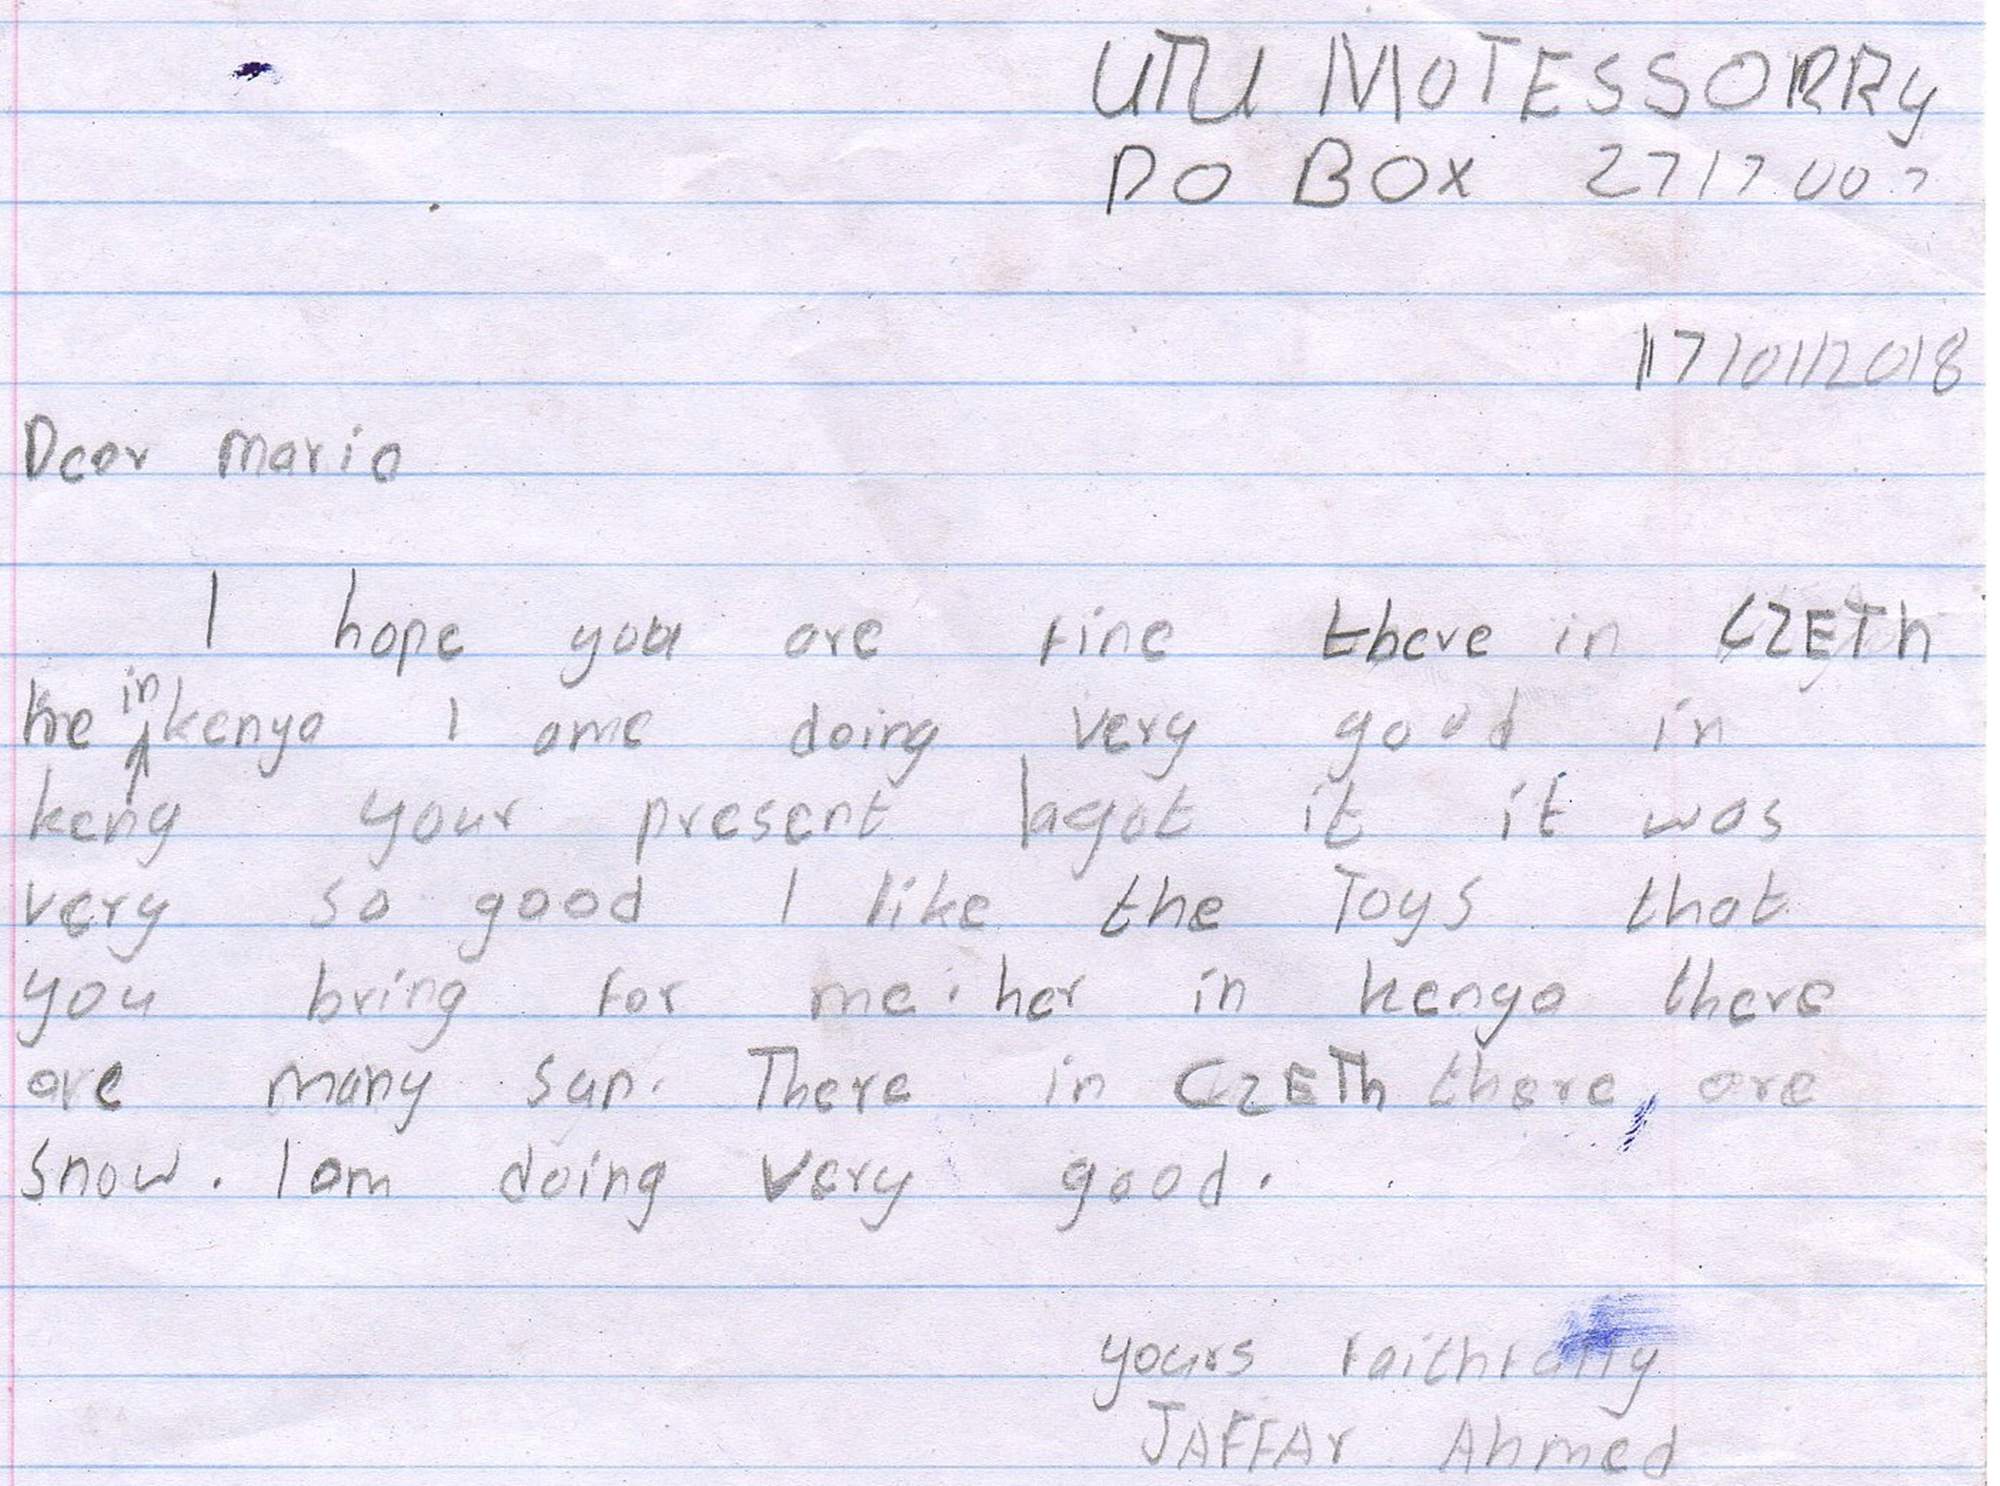 UTU MOTESSORRY
PO BOX 2717 00?
17/01/2018
Dear maria
I hope you are fine there in CZETh
he in kenya I ame doing very good in
keny your present I agot it it was
very so good I like the Toys that
you bring for me. her in kenya there
are many sun. There in CZETh there, are
snow. I am doing very good.
yours faithfully
JAFFAr Ahmed